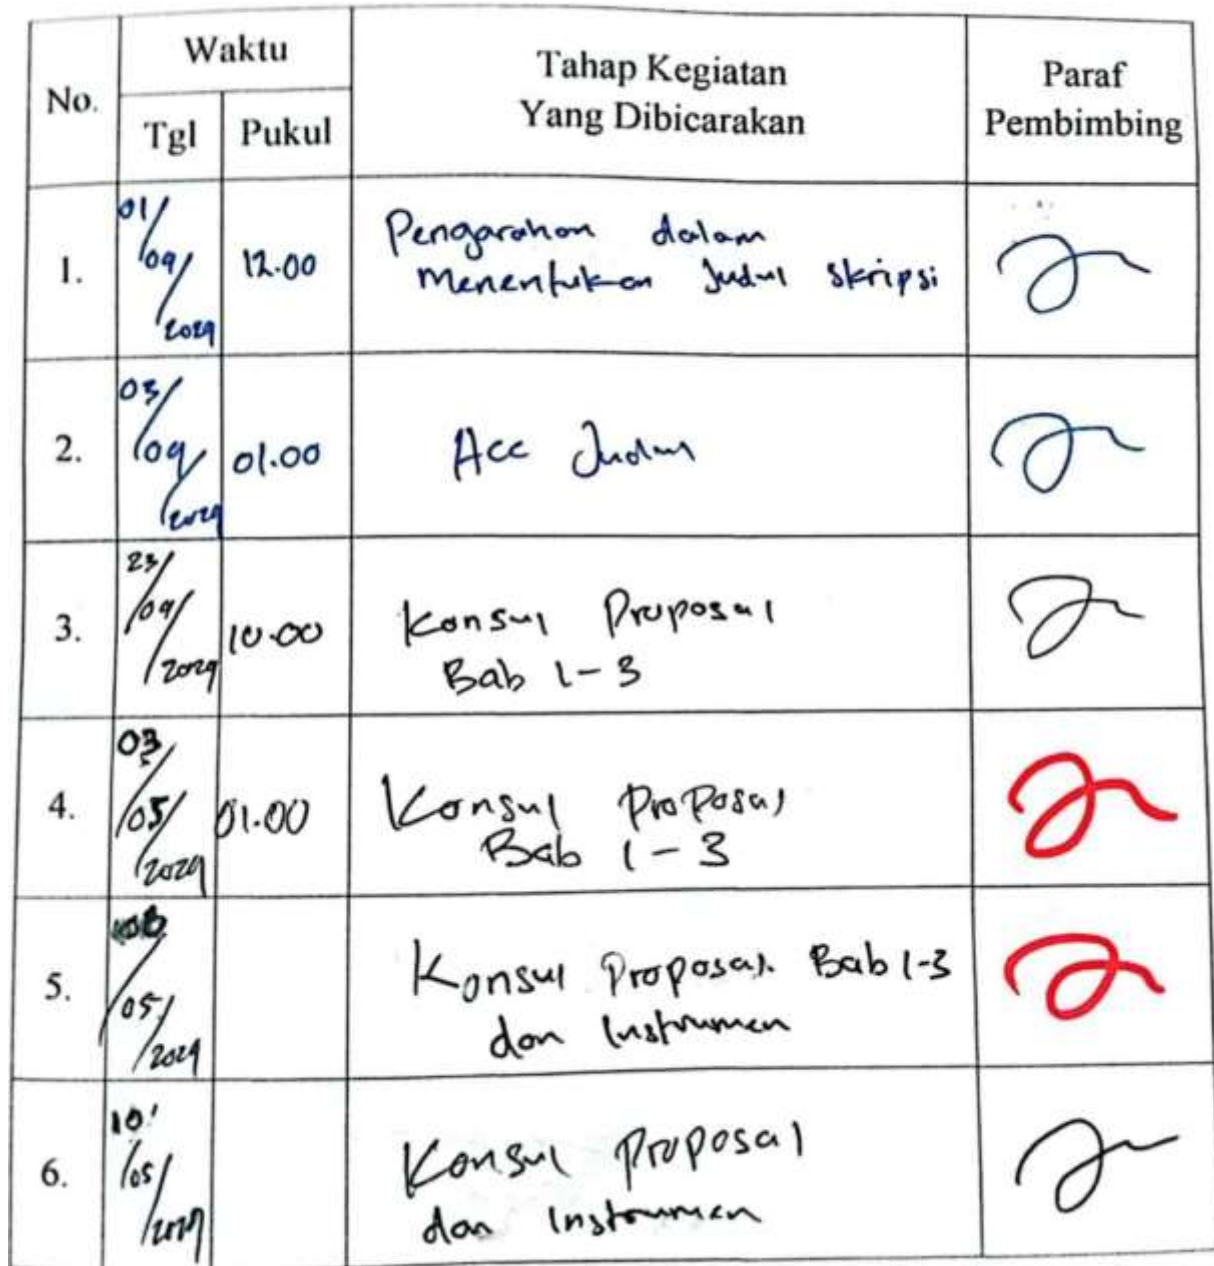 No.
Waktu
Tahap Kegiatan
Yang Dibicarakan
Paraf
Pembimbing
Tgl
Pukul
1.
01/
09/
2024
12.00
Pengarahan dalam
Menentukan Judul skripsi
2.
03/
09/
2024
01.00
Acc Judul
3.
23/
09/
2024
10.00
Konsul Proposal
Bab 1-3
4.
03/
05/
2024
01.00
Konsul Proposal
Bab 1-3
5.
/
05/
2024
Konsul Proposal. Bab 1-3
dan Instrumen
6.
10/
/05/
2024
Konsul Proposal
dan Instrumen